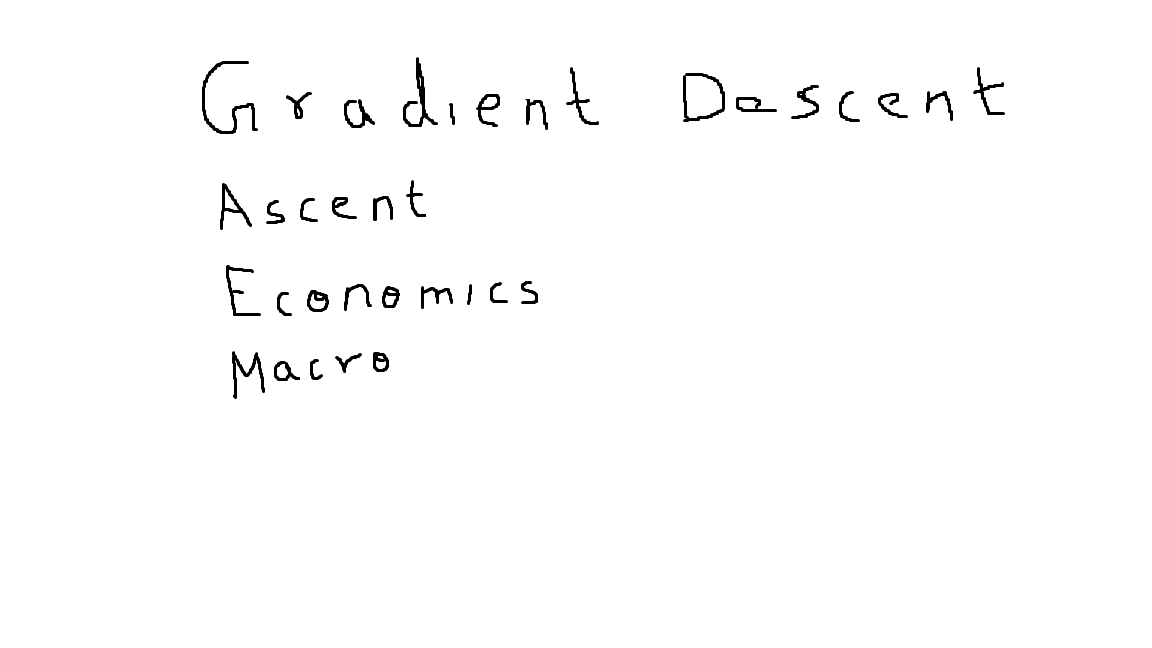 Gradient Descent
Ascent
Economics
Macro